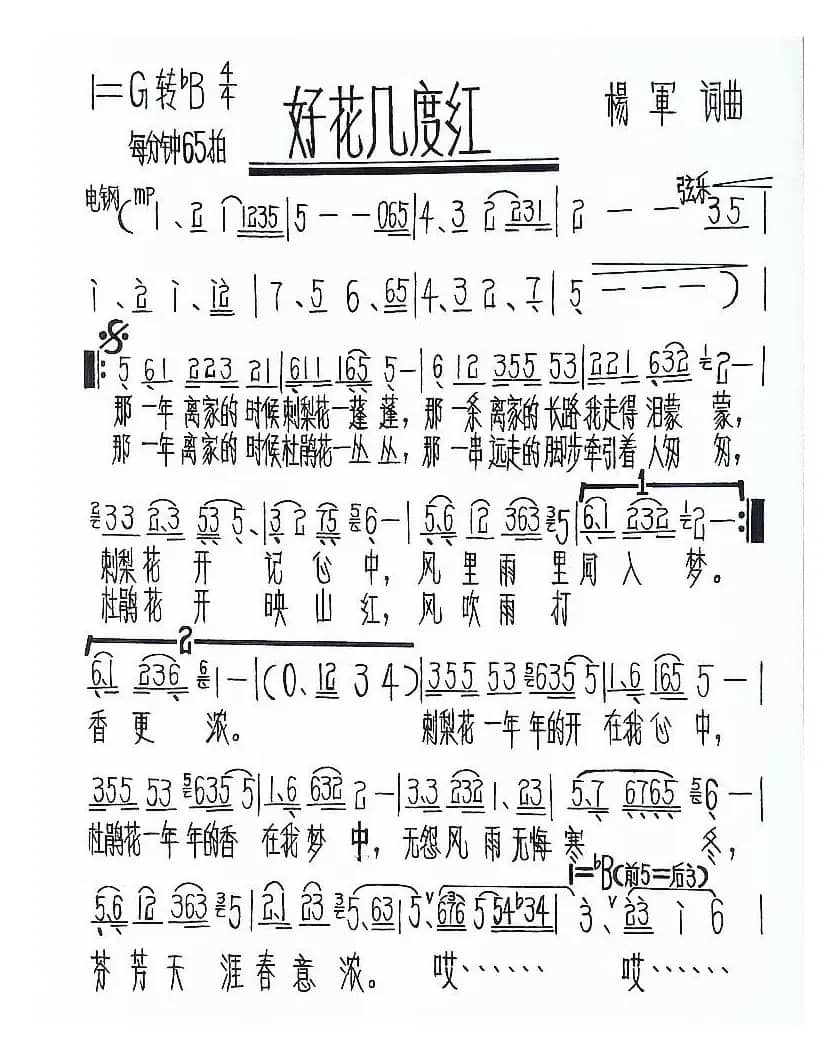 1=G转♭B 4/4
好花几度红
楊軍 词曲
每分钟65拍
电钢 弦乐
(mp 1、2 1 1235 | 5 - - 065 | 4、3 2 231 | 2 - - 35 |
1、2 1、12 | 7、5 6、65 | 4、3 2、7 | 5 - - - ) |
5 61 223 21 | 611 165 5 - | 6 12 355 53 | 221 632 1 2 - |
那 一年 离家的 时候刺梨花一蓬 蓬，那 一条 离家的 长路我走得 泪蒙 蒙，
那 一年 离家的 时候杜鹃花一丛 丛，那 一串 远走的 脚步牵引着 人匆 匆，
1
2 33 2、3 53 5、| 3 2 75 5 6 - | 5、6 12 363 3 5 | 6、1 232 1 2 - :|
刺梨花 开 记 心 中，风 里 雨 里 同 入 梦。
杜鹃花 开 映 山 红，风 吹 雨 打
2
6、1 236 6 1 - | (0、12 3 4) | 355 53 5 635 5 | 1、6 165 5 - |
香 更 浓。 刺梨花 一年 年的开 在我心 中，
355 53 5 635 5 | 1、6 632 2 - | 3、3 232 1、23 | 5、7 6765 5 6 - |
杜鹃花一年 年的香 在我 梦 中，无怨风 雨 无悔 寒 冬，
1=♭B(前5=后3)
5、6 12 363 3 5 | 2、1 23 3 5、63 | 5、676 5 54♭34 | 3、23 1 6 |
芬 芳 天 涯 春 意 浓。 哎…… 哎……